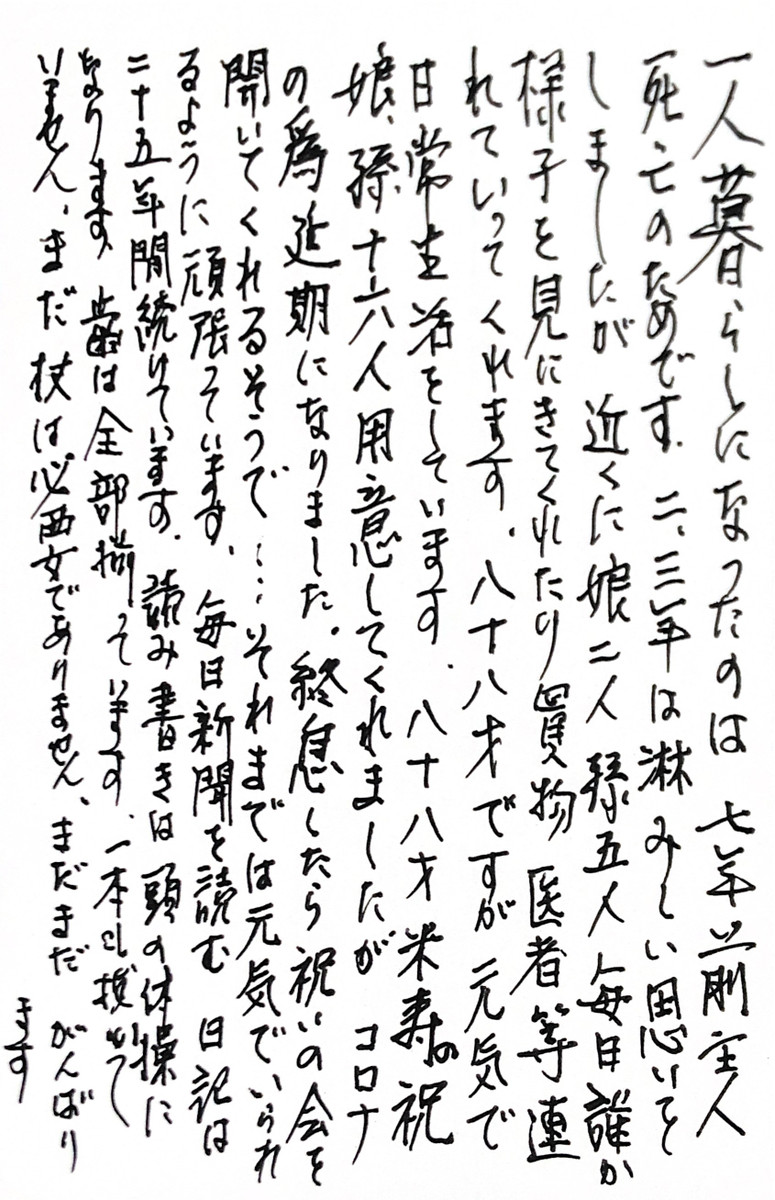 一人暮らしになったのは 七年前主人
死亡のためです。二、三年は淋みしい思いを
しましたが 近くに娘二人 孫五人 毎日誰か
様子を見にきてくれたり買物 医者等連
れていってくれます。八十八才ですが 元気で
日常生活をしています。八十八才米寿の祝
娘、孫、十六人用意してくれましたが コロナ
の為延期になりました。終息したら祝いの会を
開いてくれるそうで……それまでは元気でいられ
るように頑張っています。毎日新聞を読む 日記は
二十五年間続けています。読み書きは頭の体操に
なります。歯は全部揃っています。一本も抜かして
いません。まだ杖は必要でありません。まだまだ がんばり
ます